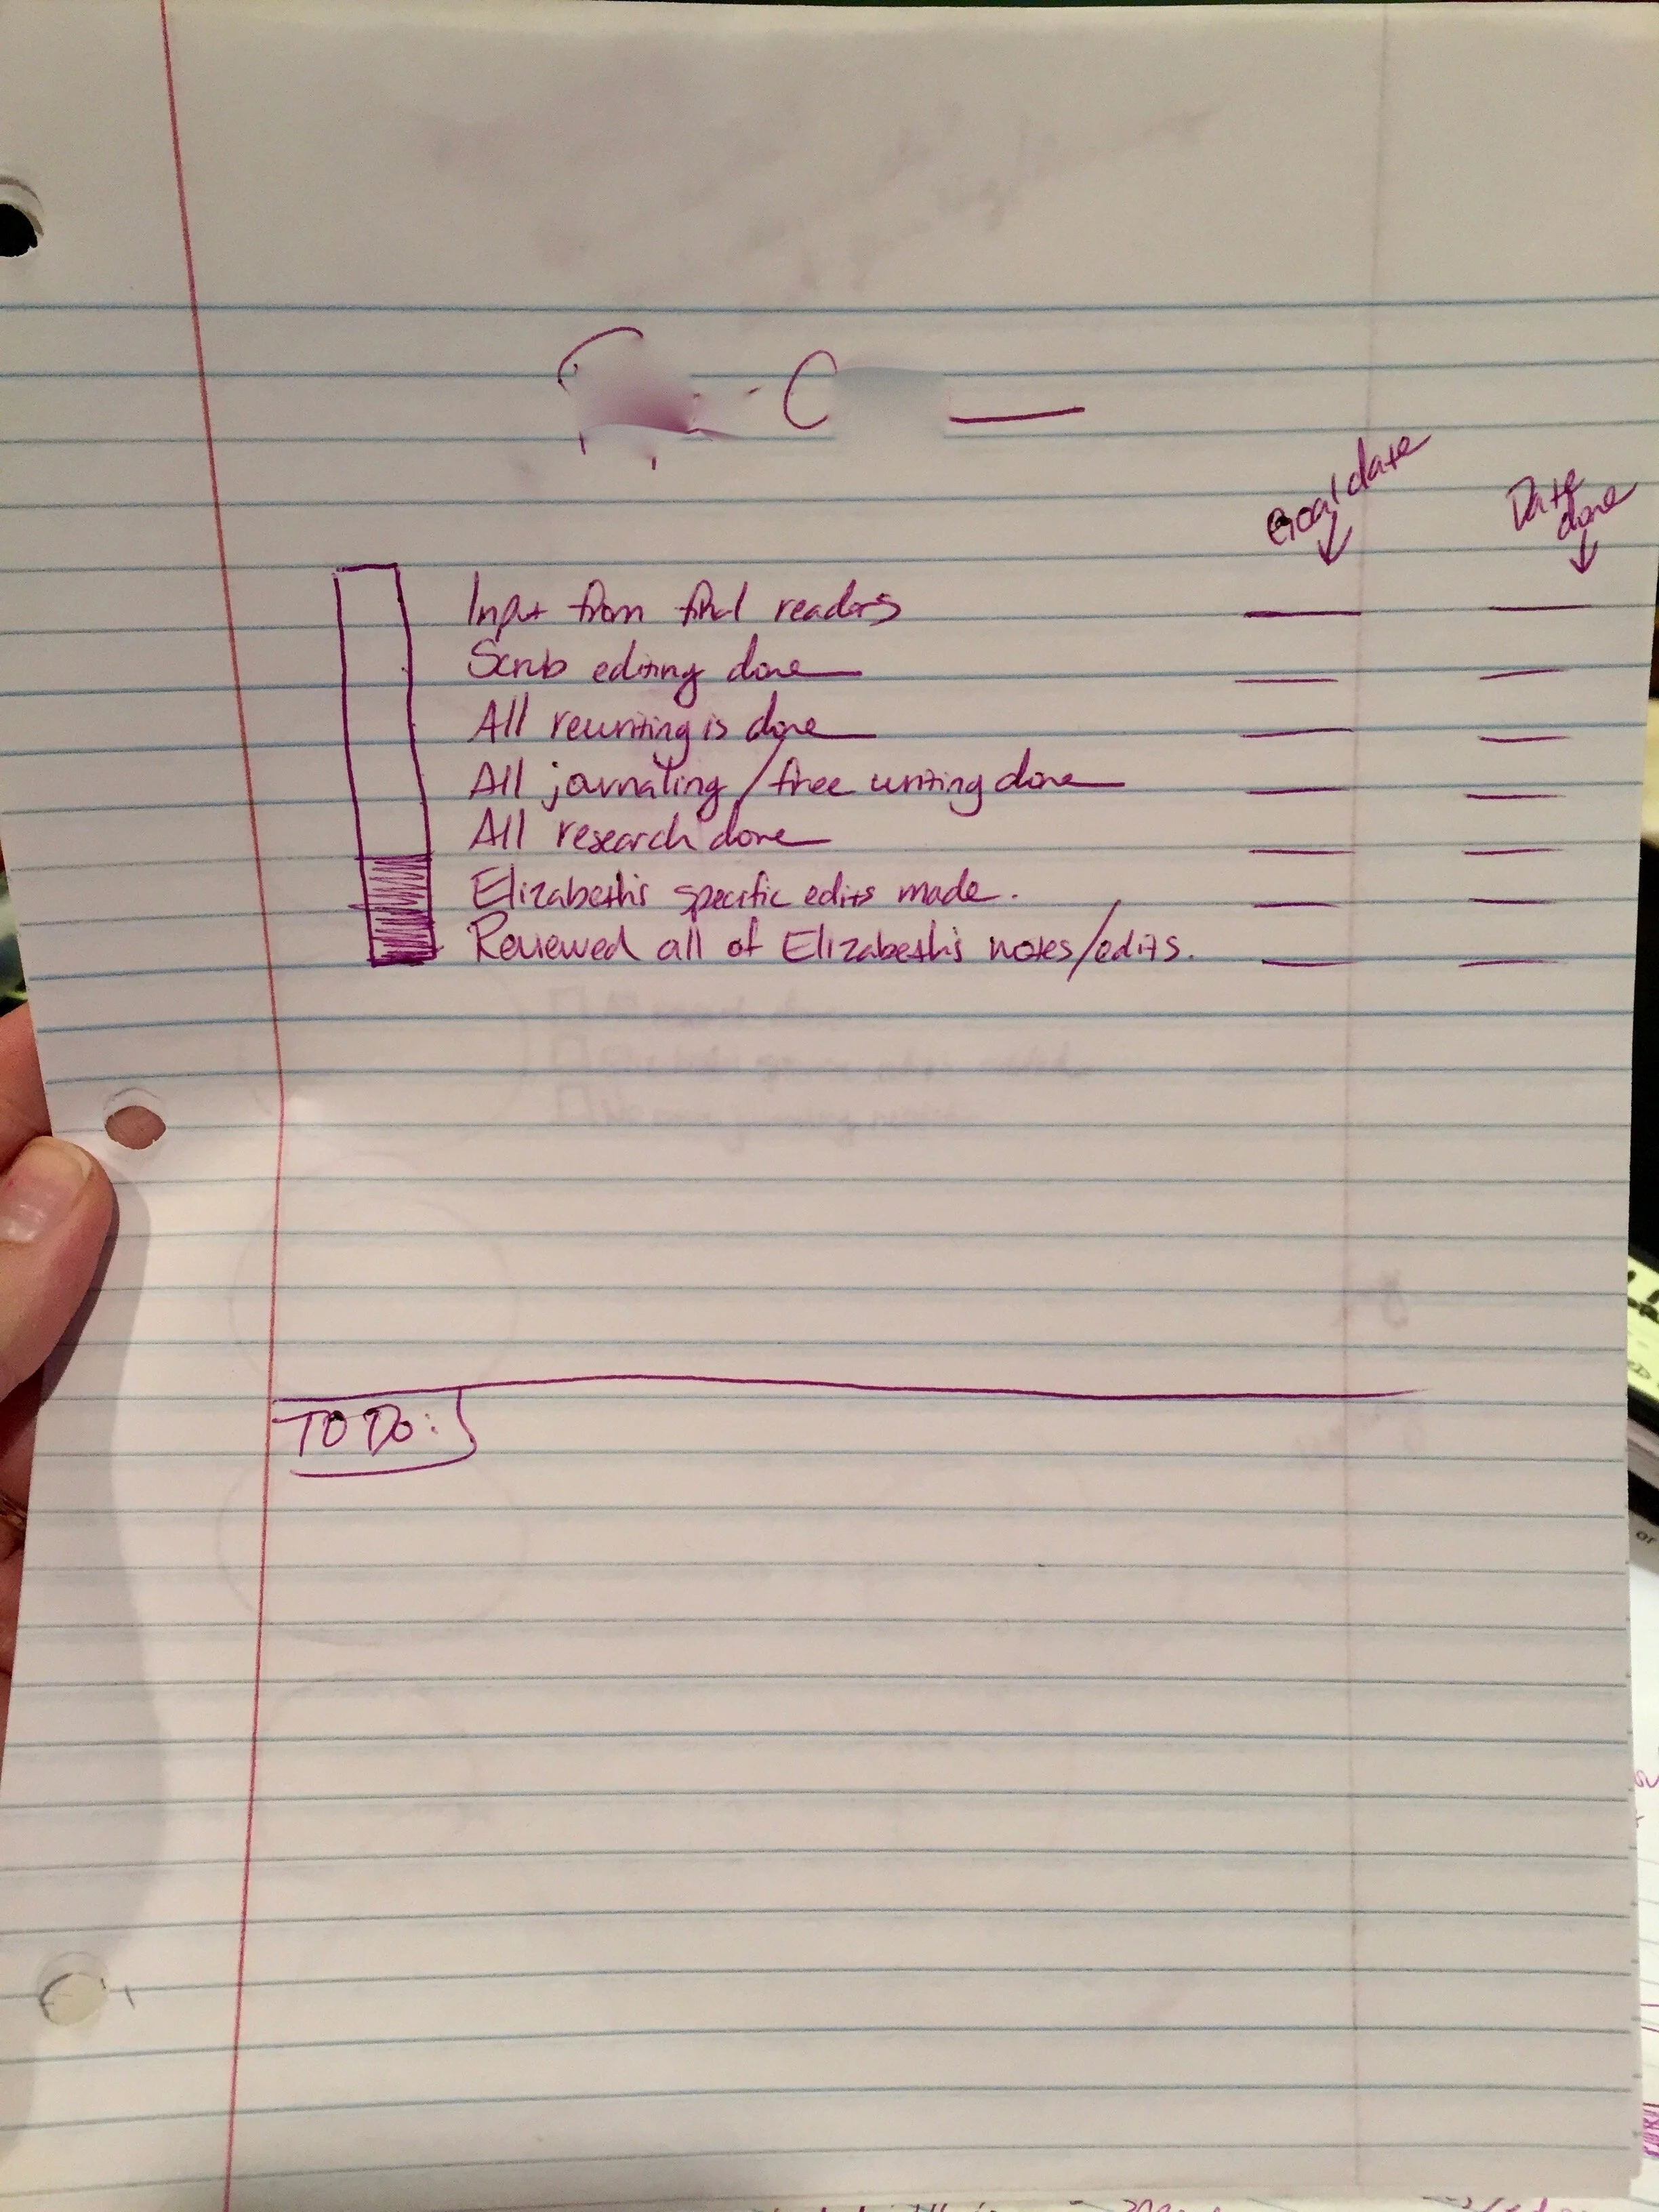 Goal date
Date done
Input from final readers
Scrub editing done
All rewriting is done
All journaling/free writing done
All research done
Elizabeth's specific edits made.
Reviewed all of Elizabeth's notes/edits.
TO DO: